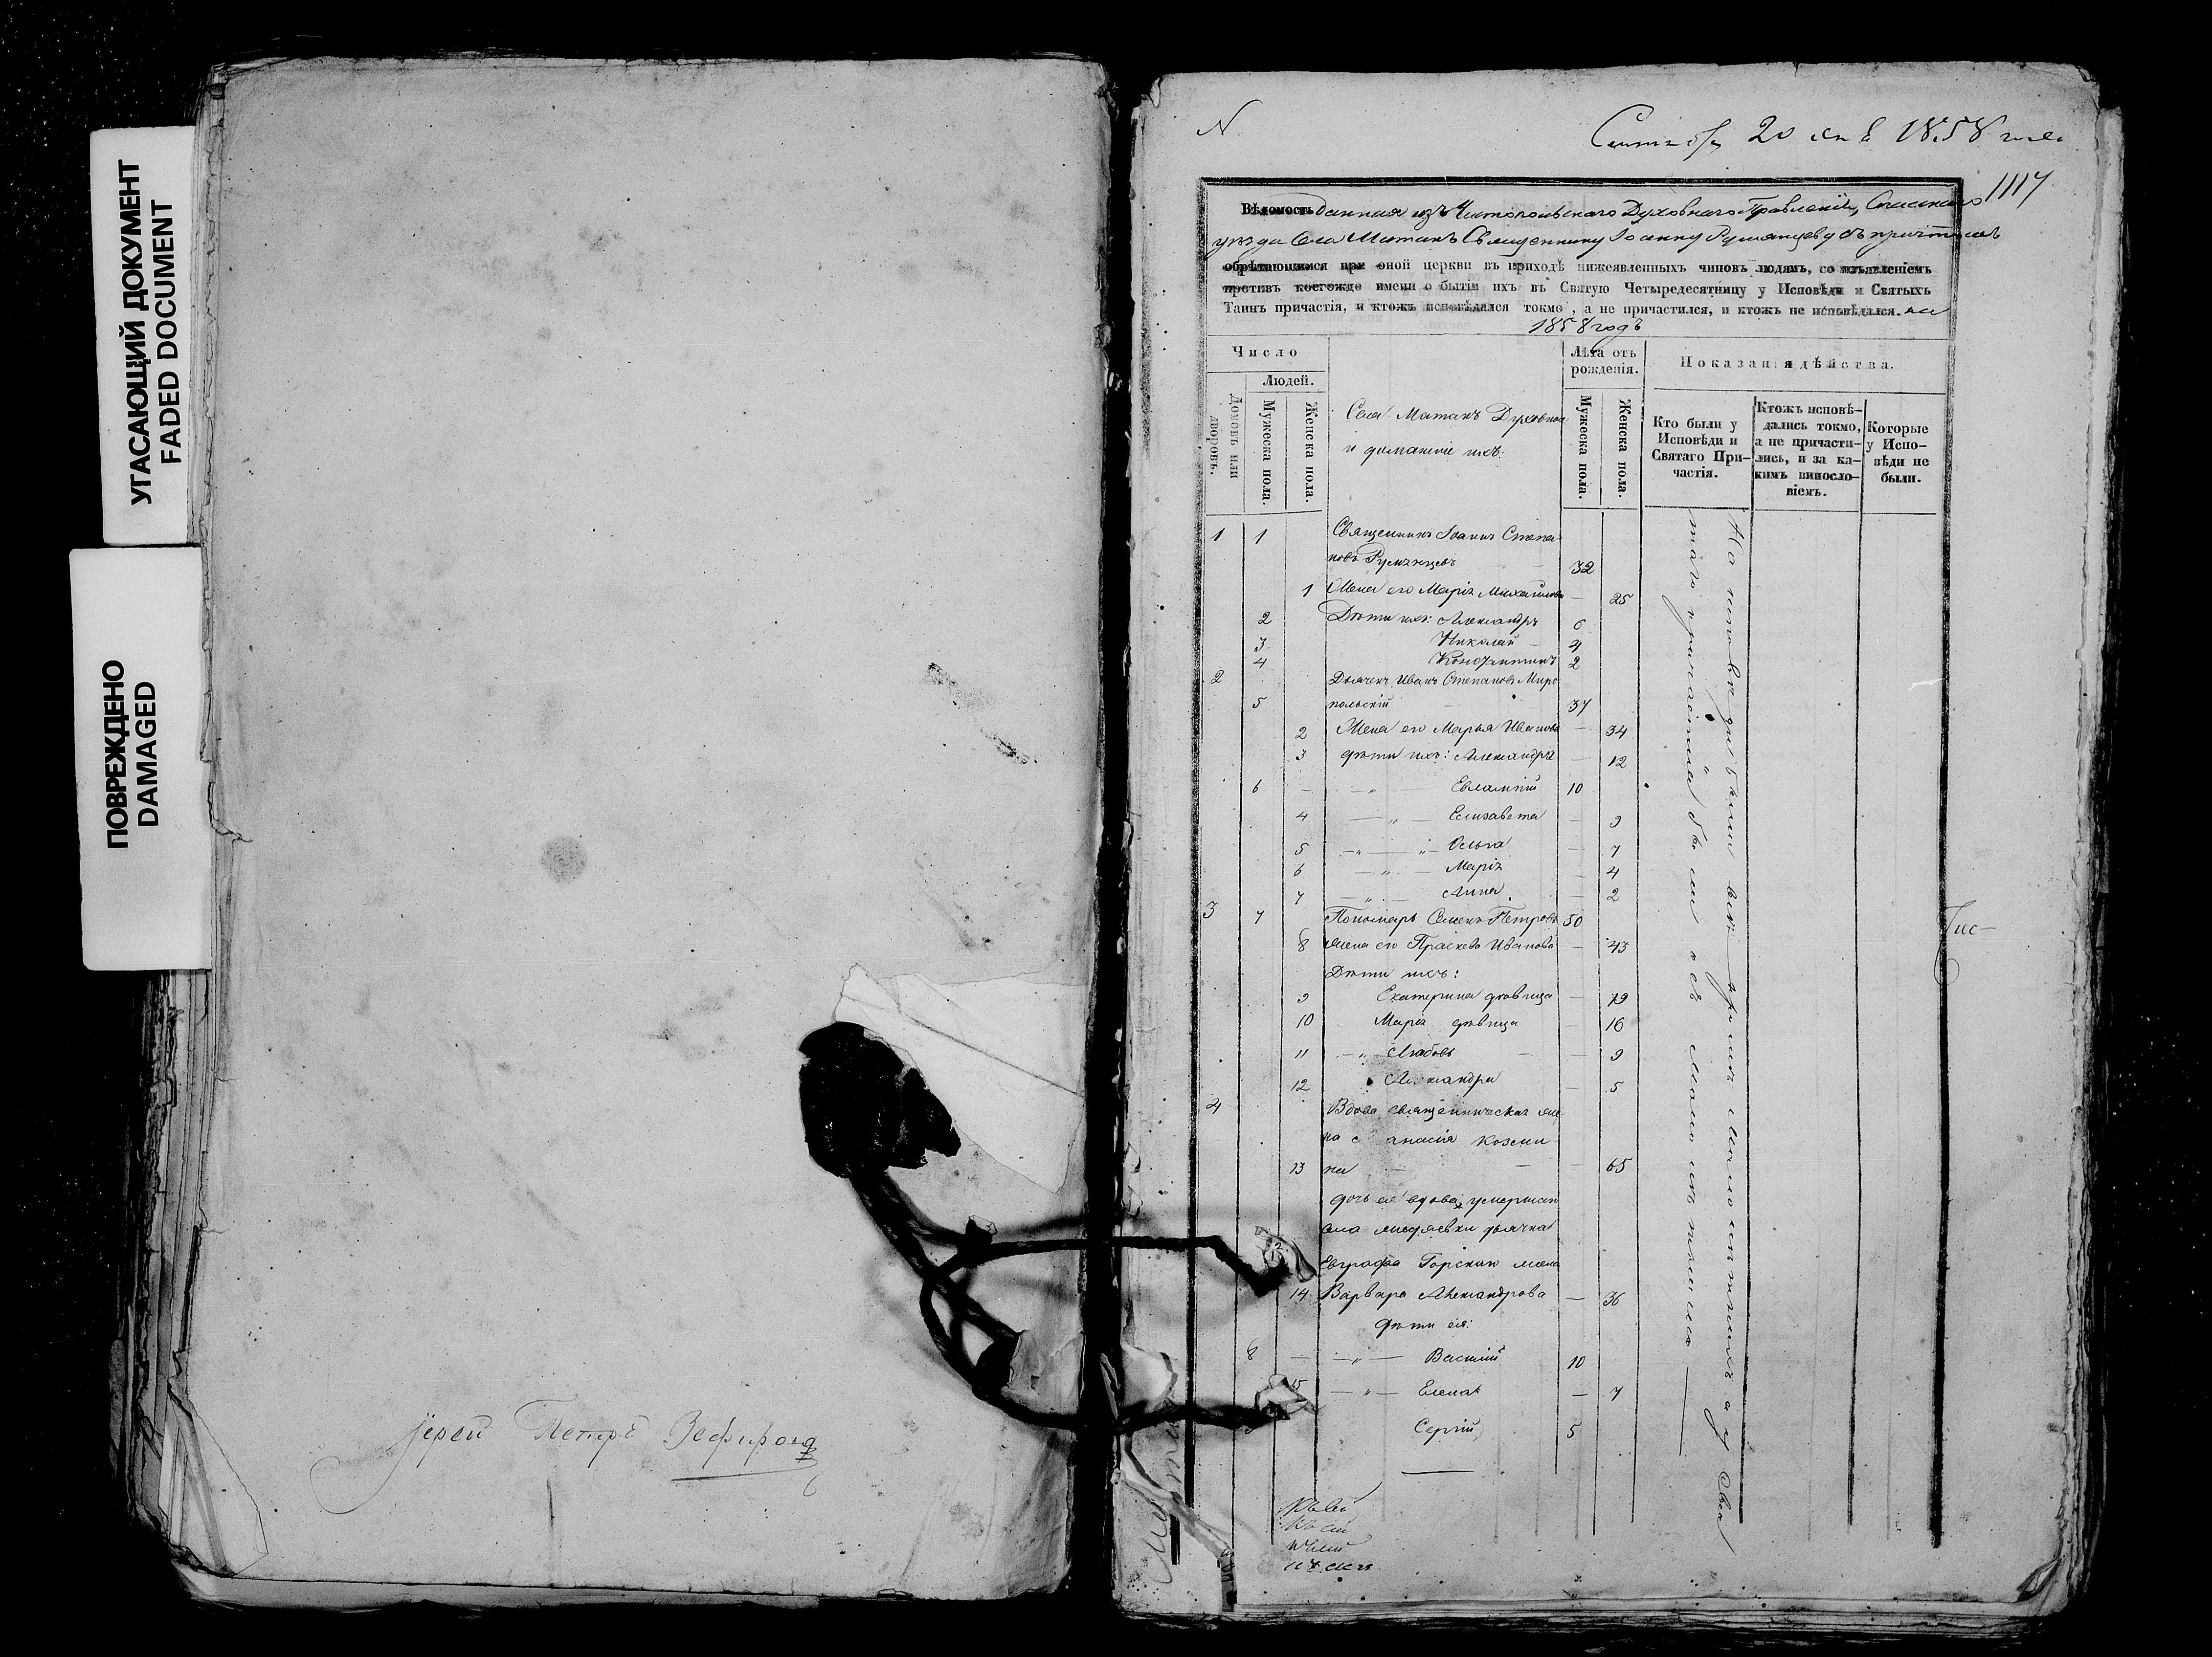 УГАСАЮЩИЙ ДОКУМЕНТ
FADED DOCUMENT
ПОВРЕЖДЕНО
DAMAGED
Іерей Петръ Зефировъ
N
20 1858 года
1117
Вѣдомость данная изъ Чистопольскаго Духовнаго Правленія, Спасскаго
уѣзда Села Матакъ Священнику Іоанну Румянцеву съ причтомъ
обрѣтающимся при оной церкви въ приходѣ нижеявленныхъ чиновъ людямъ, со изъявленіемъ
противъ коегождо имени о бытіи ихъ въ Святую Четыредесятницу у Исповѣди и Святыхъ
Таинъ причастія, и ктожъ исповѣдался токмо, а не причастился, и ктожъ не исповѣдался. на
1858 годъ
Число
Домовъ или дворовъ.
Людей.
Мужеска пола.
Женска пола.
Села Матакъ Духовные
и домашніе ихъ:
Лѣта отъ
рожденія.
Мужеска пола.
Женска пола.
Показанія дѣйства.
Кто были у
Исповѣди и
Святаго При-
частія.
Ктожъ исповѣ-
дались токмо,
а не причасти-
лись, и за ка-
кимъ винословіемъ.
Которые
у Испо-
вѣди не
были.
1 1 Священникъ Іоаннъ Степа-
новъ Румянцевъ 32
1 Жена его Марія Михайлова 25
2 Дѣти ихъ: Александръ 6
3 Николай 4
4 Константинъ 2
2 Дьячекъ Иванъ Степановъ Миро-
5 польскій 37
2 Жена его Марья Иванова 34
3 дѣти ихъ: Александра 12
6 Евлампій 10
4 Елизавета 9
5 Ольга 7
6 Марія 4
7 Анна 2
3 7 Пономарь Семенъ Петровъ 50
8 жена его Праскева Иванова 43
Дѣти ихъ:
9 Екатерина дѣвица 19
10 Марія дѣвица 16
11 Любовь 9
12 Александра 5
4 Вдова священническая же-
на Козми-
13 на 65
дочь ея вдова, умершаго
села дьячка
Евграфа Горскаго жена
14 Варвара Александрова 36
дѣти ея:
8 Василій 10
15 Елена 7
Сергій 5
Пис-